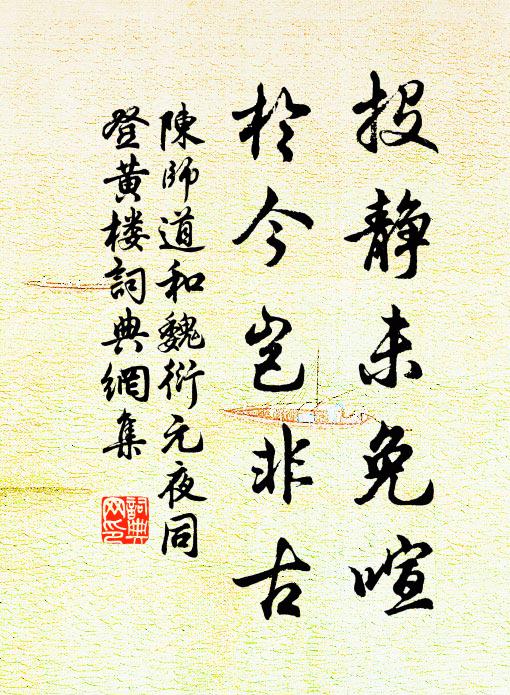 投静未免喧
於今岂非古
陳師道和魏衍元夜同
登黄楼詞典網集
詞典网印